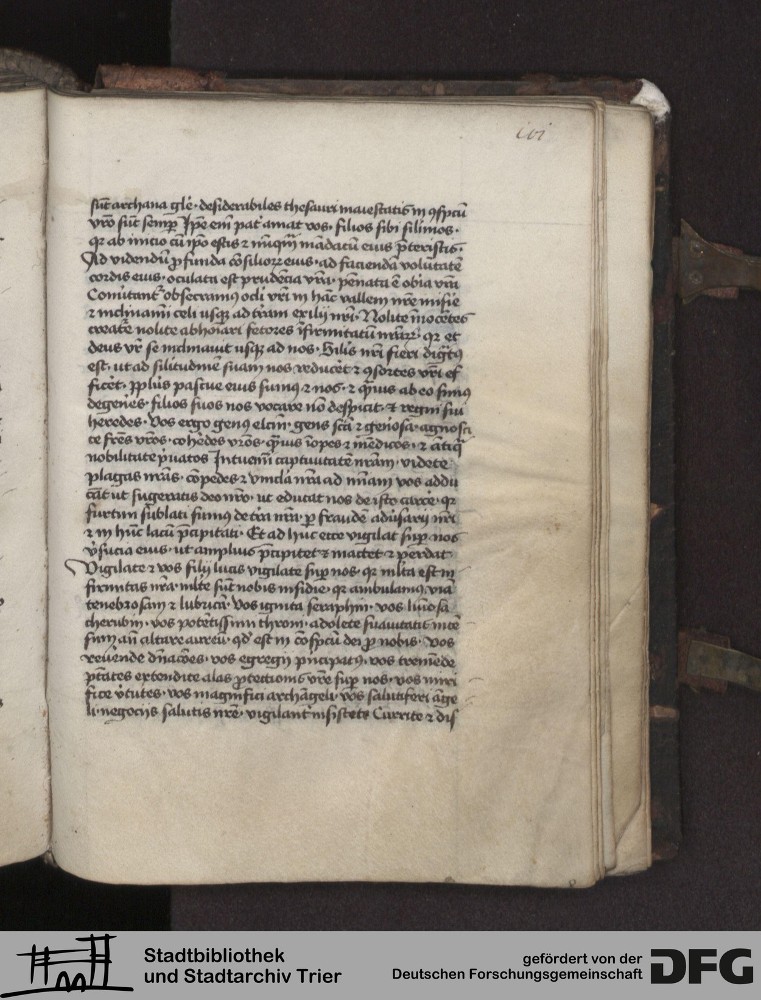 ioi
sūt archana gl̄e · desiderabiles thesauri maiestatis in ꝯspcū
vr̄o sūt semꝑ Ip̄e em̄ pat̾ amat vos · filios sibi silimos ·
qr ab inicio cū ip̄o estis ⁊ nūqm̄ mādatū eius p̄teristis ·
Ad videndū ꝓfunda cōsilioꝝ eius · ad faciendā volūtatē
cordis eius · oculata est prudēcia vr̄a · pēnata ē obīa vr̄a
Comitant᷒ obsecramꝰ ocl̄i vr̄i in hāc vallem nr̄e misīe
⁊ inclinamī celi usqꝫ ad trā̄m exilij nr̄i · Nolite īnocētes
creatē nolite abhoīari fetores īfirmitatū nr̄aꝝ · qr et
deus vr̄ se inclinauit usqꝫ ad nos · Silīs nr̄i fieri dignꝰ
est · ut ad silitudinē suam nos reducēt ⁊ ꝯsortes vr̄i ef
ficēt · Ppl̄us pascue eius sumꝰ ⁊ nos · ⁊ qm̄uis ab eo simꝰ
degenēs · filios suos nos vocare nō despicit · ⁊ regni sui
heredes · Vos ergo genꝰ elcm̄ · gens scā ⁊ gēiosa · agnosci
te fr̄es vr̄os · cohēdes vr̄os · qm̄uis īopes ⁊ mēdicos · ⁊ ātiq̄
nobilitate p̄uatos Intuemī captiuitatē nr̄am · videte
plagas nr̄as · cōpedes ⁊ vincla nr̄a ad mīam vos addu
cāt ut sugeratis deo nr̄o · ut educat nos de isto carcē · qr
furtim sublati sumus de tr̄a nr̄a · ꝑ fraudē adūsarij nr̄i
⁊ in hūc lacū p̄cipitati · Et ad huc ecce vigilat suꝑ nos
v̾sucia eius · ut amplius p̄cipitet ⁊ mactet ⁊ perdat
Vigilate ⁊ vos filij lucis vigilate suꝑ nos · qr ml̄ta est in
firmitas nr̄a · ml̄te sūt nobis insidie · qr ambulamꝰ viā
tenebrosam ⁊ lubricā · Vos ignita seraphin · vos
cherubin · vos potētissimi throni · adolete suauitatis incē
sum an̄ altare aureū · qd̾ est in cōspcū dei ꝓ nobis · Vos
reūende dn̄acōes · vos egregij p̄ncipatꝰ · vos tremēde
p̄tates extendite alas ꝓtectionis vr̄e suꝑ nos · vos miri
fice v̾tutes · vos magnifici archāgeli · vos salutiferi āge
li · negocijs salutis nr̄e · vigilant᷒ insistete Currite ⁊ dis
Stadtbibliothek
und Stadtarchiv Trier
gefördert von der
Deutschen Forschungsgemeinschaft
DFG